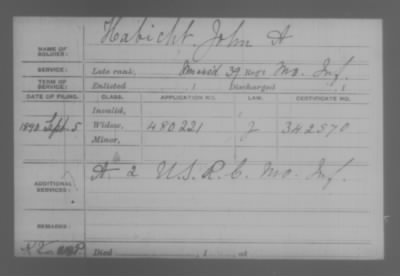 Habicht, John A
NAME OF SOLDIER:
SERVICE: Late rank, 39 Reg't Mo. Inf.
TERM OF SERVICE: Enlisted , 1 Discharged , 1
DATE OF FILING. CLASS. APPLICATION NO. LAW. CERTIFICATE NO.
Invalid,
1890 Sept. 5 Widow, 480221 2 342570
Minor,
ADDITIONAL SERVICES: A 2 U.S.R.C. Mo. Inf.
REMARKS:
Died , 1 , at